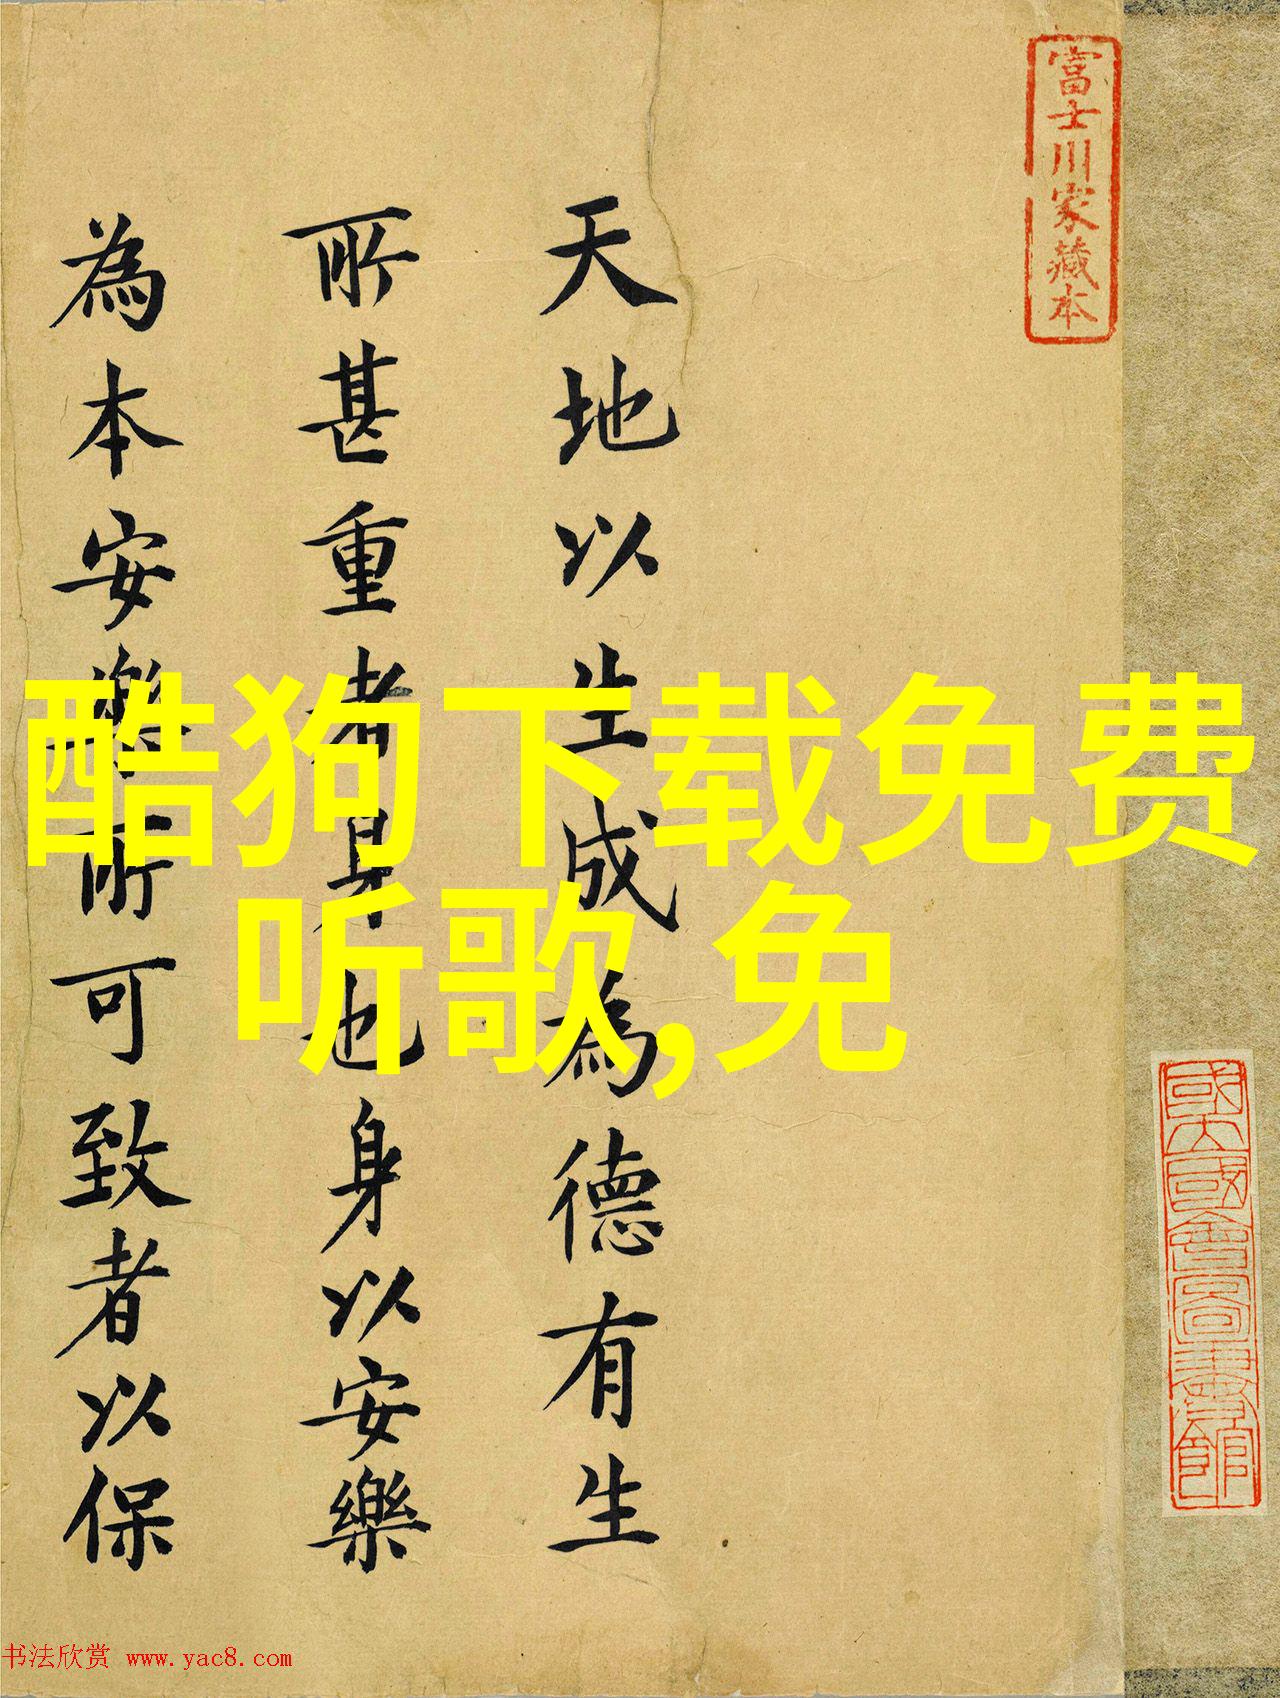 富士川家藏本
天地以生成為德有生
所甚重者身也身以安樂
為本安樂所可致者以保
酷狗下载免费
听歌,免
书法欣赏 www.yac8.com